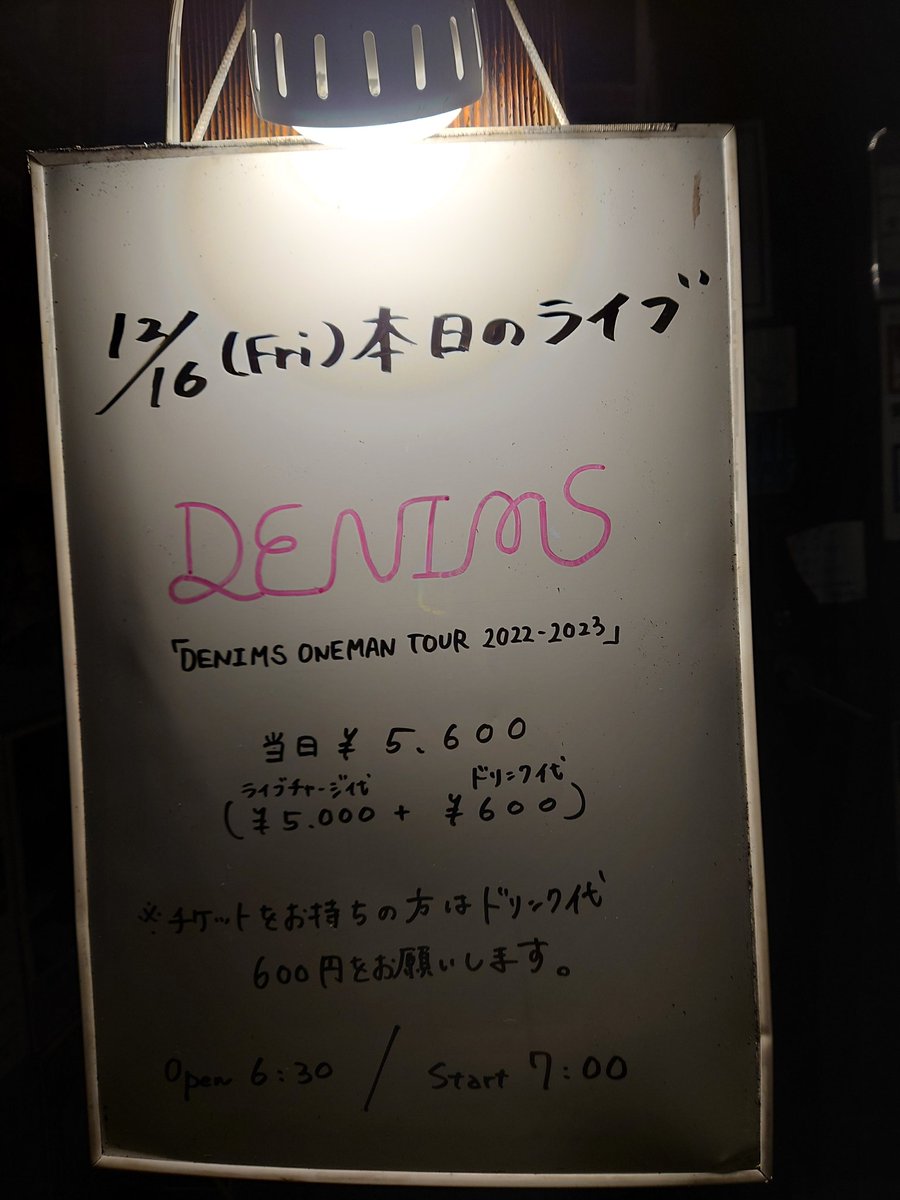 12/16 (Fri) 本日のライブ
DENIMS
「DENIMS ONEMAN TOUR 2022-2023」
当日 ¥ 5.600
ライブチャージ代 ドリンク代
(¥5.000 + ¥600)
※チケットをお持ちの方はドリンク代
600円をお願いします。
Open 6:30 / Start 7:00